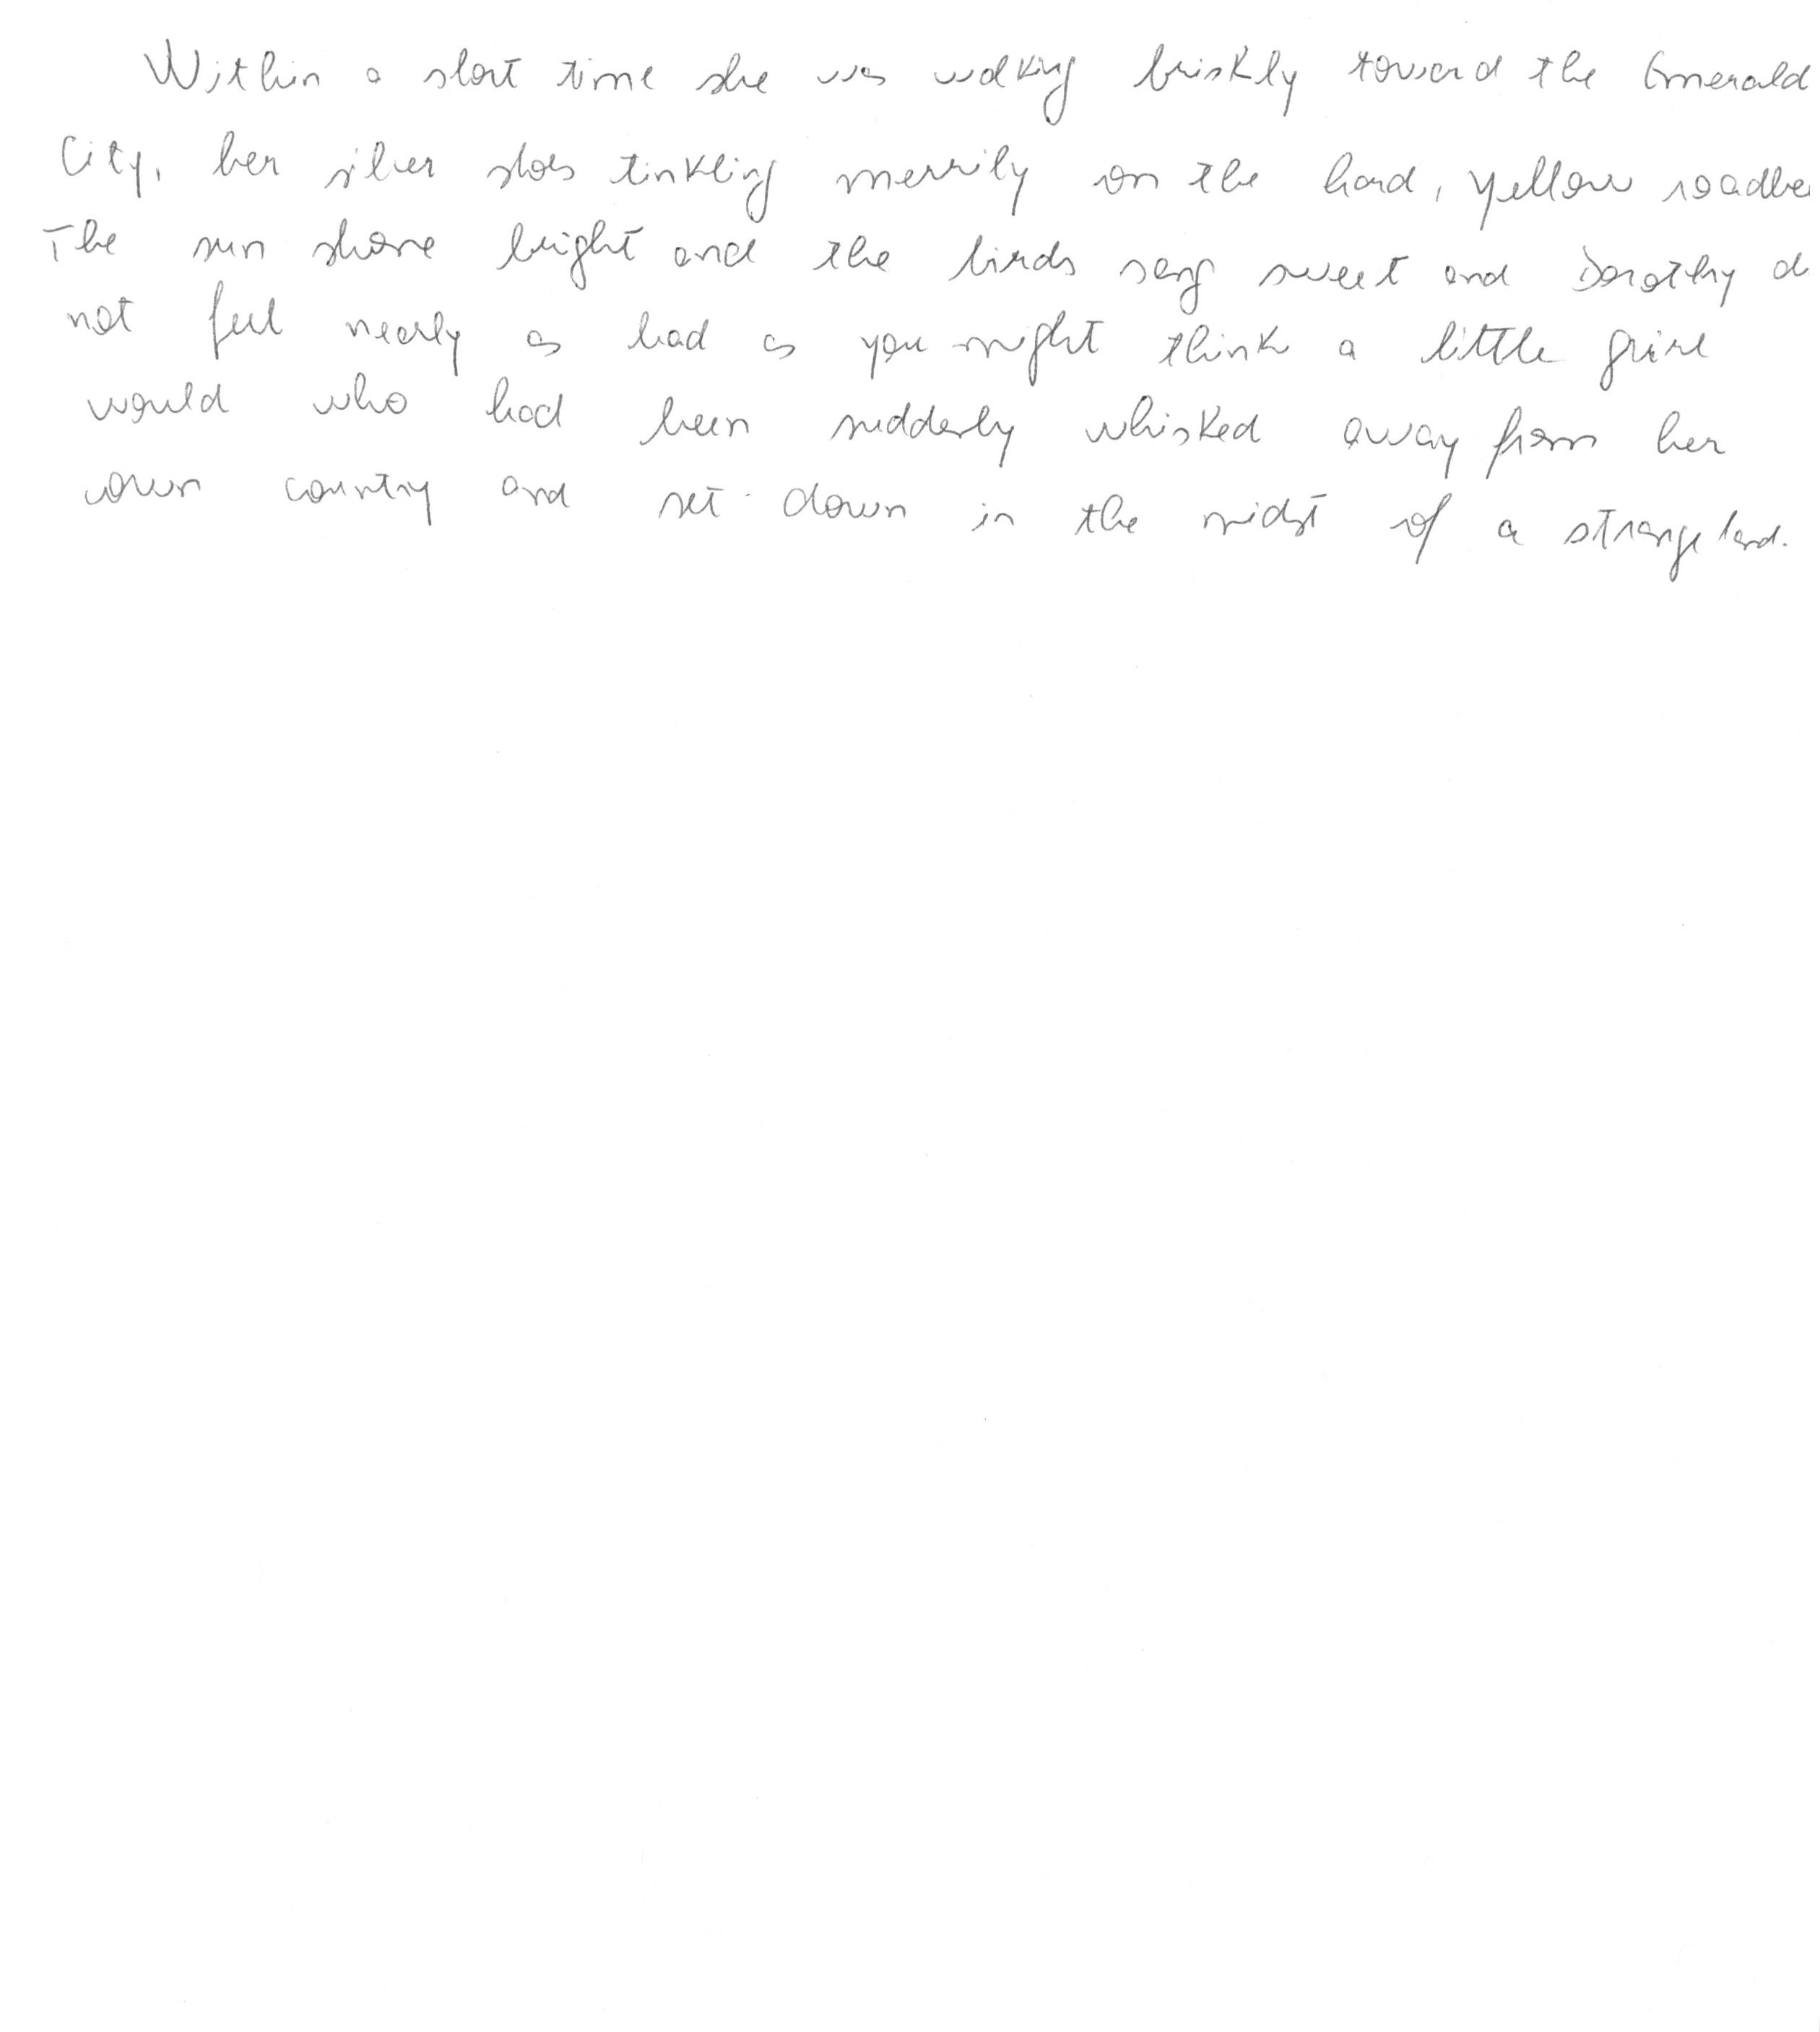 Within a short time she was walking briskly toward the Emerald
City, her silver shoes tinkling merrily on the hard, yellow roadbe
The sun shone bright and the birds sang sweet and Dorothy d
not feel nearly as bad as you might think a little girl
would who had been suddenly whisked away from her
own country and set down in the midst of a strange land.